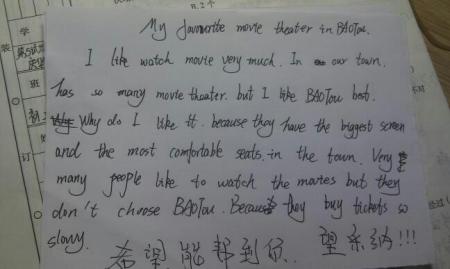 My favourite movie theater in BAOTou.
I like watch movie very much. In our town,
has so many movie theater. but I like BAOTou best.
Why do I like it. because they have the biggest screen
and the most comfortable seats. in the town. Very
many people like to watch the movies but they
don't choose BAOTou. Because they buy tickets so
slowy.
希望能帮到你 望采纳!!!
装
订
学
班